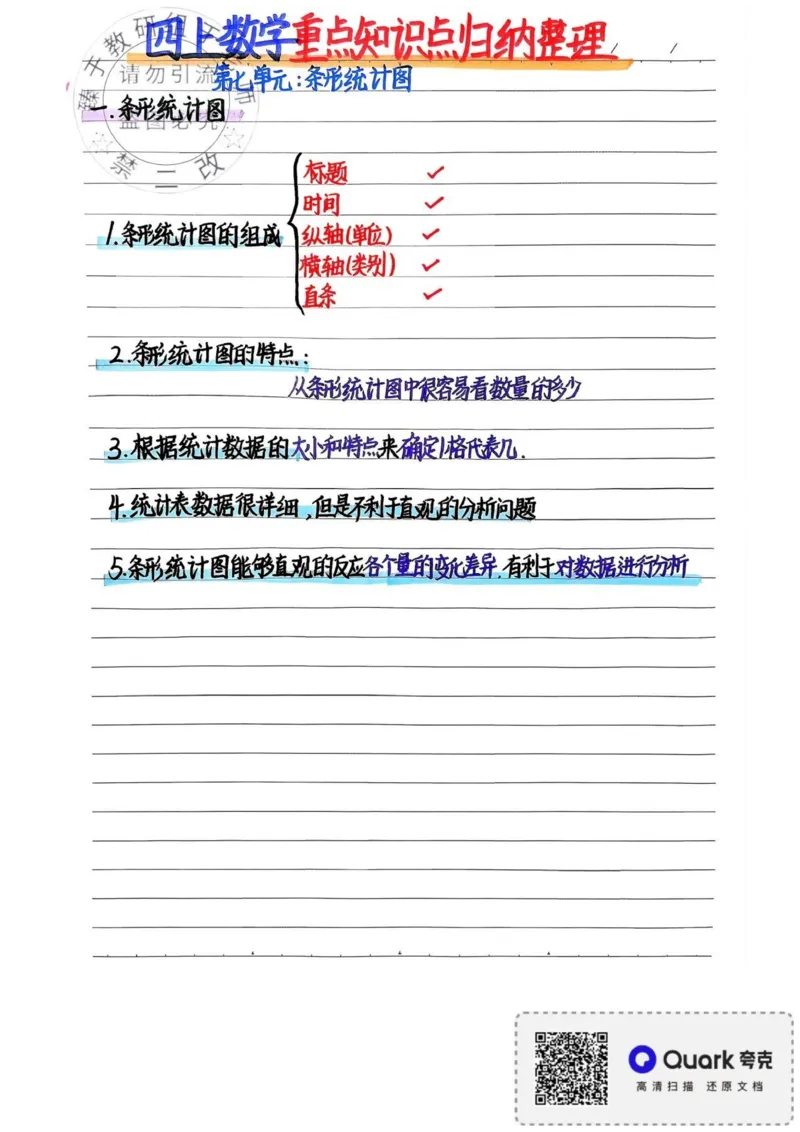 四上数学重点知识点归纳整理
第七单元:条形统计图
臻于教研组
请勿引流
盗图必究
禁二改
一.条形统计图
1.条形统计图的组成
标题 ✓
时间 ✓
纵轴(单位) ✓
横轴(类别) ✓
直条 ✓
2.条形统计图的特点:
从条形统计图中很容易看数量的多少
3.根据统计数据的大小和特点来确定1格代表几.
4.统计表数据很详细,但是不利于直观的分析问题
5.条形统计图能够直观的反应各个量的变化差异.有利于对数据进行分析
Quark夸克
高清扫描 还原文档